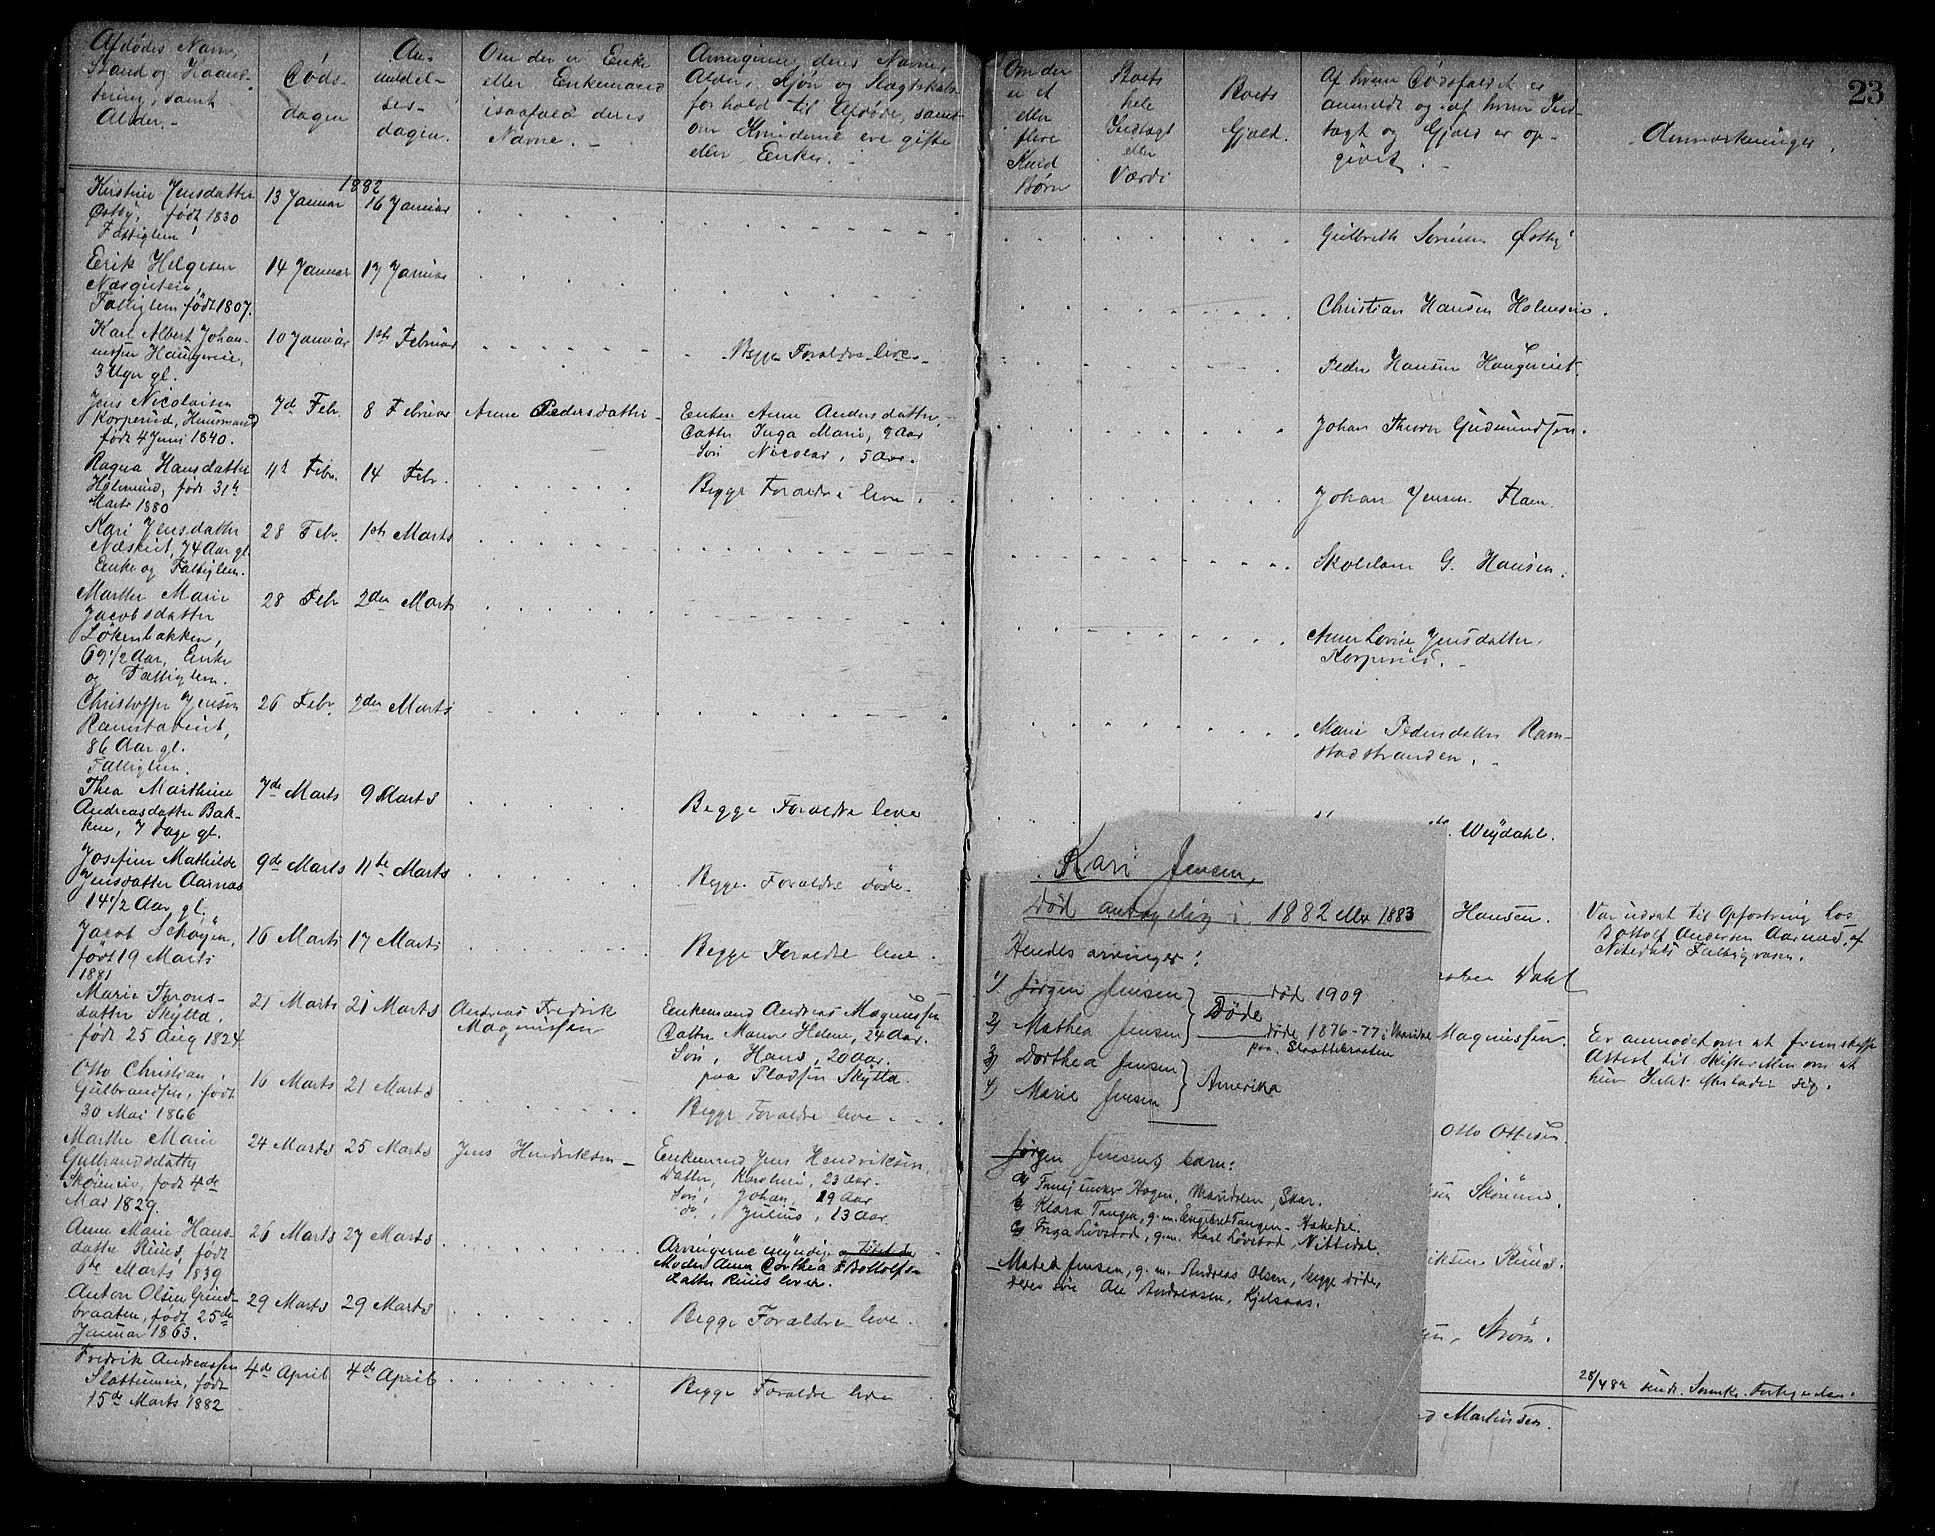 Afdødes Navn,
Stand og Haand-
tring, samt
Alder. -
Døds-
dagen
An-
meldel-
ses-
dagen.
Om der er Enke
eller Enkemand
isaafald deres
Navne. -
Arvingerne, deres Navne,
Alder, Kjøn og Slægtskabs-
forhold til Afdøde, samt
om Kvinderne ere gifte
eller Enker. -
Om der
er et
eller
flere
Kuld
Børn
Boets
hele
Indtægt
eller
Værdi
Boets
Gjæld.
Af hvem Dødsfaldet er
anmeldt og af hvem Ind-
tægt og Gjæld er op-
givet. -
Anmærkninger.
23
1882
Kirstine Jensdatter
Østby, født 1830
Fattiglem
13 Januar
16 Januar
Gulbrith Sørensen Østby
Erik Helgesen
Næsguteie,
Fattiglem født 1807.
14 Januar
17 Januar
Christian Hansen Holmseie.
Karl Albert Johan-
nessen Haugereie,
3 Uger gl.
10 Januar
1ste Februar
Begge Forældre leve -
Peder Hansen Haugereiet.
Jens Nicolaisen
Korperud, Huusmand
født 4 Juni 1840.
7de Febr.
8 Februar
Anne Pedersdatter -
Enken Anne Andersdatter,
Datter Inga Marie, 9 Aar
Søn Nicolai, 5 Aar.
Johan Thorer Gudmundsen.
Ragna Hansdatter
Holmerud, født 31te
Marts 1880
4de Febr.
14 Febr.
Begge Forældre leve.
Johan Jensen Flam.
Kari Jensdatter
Næseiet, 74 Aar gl.
Enke og Fattiglem.
28 Febr.
1ste Marts
Skolelærer G. Hansen.
Marthe Marie
Jacobsdatter
Løkenbakken,
69 1/2 Aar, Enke
og Fattiglem.
28 Febr
2den Marts
Anne Lovise Jensdatter
Korperud. -
Christoffer Jensen
Ramstadeiet,
86 Aar gl.
Fattiglem.
26 Febr.
2den Marts
Marie Pedersdatter Ram-
stadstranden. -
Thea Marthine
Andreasdatter Bak-
ken, 7 Dage gl.
7de Marts
9 Marts
Begge Forældre leve
Weydahl.
Josefine Mathilde
Jensdatter Aarnæs
14 1/2 Aar gl.
9de Marts
11te Marts
Begge Forældre døde -
Hansen.
Var udsat til Opfostring hos
Bottolf Andersen Aarnæs, af
Nitedals Fattigvæsen.
Jacob Schøyen,
født 19 Marts
1881
16 Marts
17 Marts
Begge Forældre leve.
Dahl
Marie Throns-
datter Skytta,
født 25 Aug 1824
21 Marts
21 Marts
Andreas Fredrik
Magnussen
Enkemand Andreas Magnussen
Datter Maren Helene, 24 Aar.
Søn, Hans, 20 Aar.
paa Pladsen Skytta.
Magnussen.
Er anmodet om at fremskaffe
Attest til Skifteretten om at
Otto Christian
Gulbrandsen, født
30 Mai 1866
16 Marts
21 Marts
Begge Forældre leve.
Otto Ottesen
Marthe Marie
Gulbrandsdatter
Skøieneie, født 4de
Mai 1829.
24 Marts
25 Marts
Jens Hendriksen -
Enkemand Jens Hendriksen,
Datter, Karoline, 23 Aar.
Søn, Johan, 19 Aar
do., Julius, 13 Aar.
Anne Marie Hans-
datter Ruud, født
Marts 1839
26 Marts
27 Marts
Arvingerne myndige
Moder Anne Dorthea Bottolfs-
datter Ruus lever.
iksen Ruud.
Anton Olsen Grind-
braaten, født 25de
Januar 1863.
29 Marts
29 Marts
Begge Forældre leve.
Fredrik Andreassen
Slattumeie, født
15de Marts 1882
4de April
4de April
Begge Forældre leve
Martinsen.
Kari Jensen,
Død antagelig i 1882 eller 1883
Hendes arvinger:
1) Jørgen Jensen
2) Mathea Jensen
Døde
død 1909
døde 1876-77 i Maridal
paa Slaattebraaten
3) Dorthea Jensen
4) Marie Jensen
Amerika
Jørgen Jensens barn:
a) Fru enke Hagen, Maridalen, Skar.
b) Klara Tangen, g.m. Engebret Tangen - Hakedal.
c) Inga Løvstad, g.m. Karl Løvstad, Nittedal.
Matea Jensen, g.m. Andreas Olsen, begge døde,
deres søn Ole Andreassen, Kjelsaas.